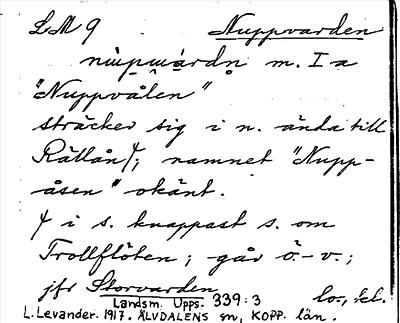 LM 9 Nuppvarden
nùpwárdn m. I a
"Nuppvålen"
sträcker sig i n. ända till
Rällån/; namnet "Nupp-
åsen" okänt.
/ i s. knappast s. om
Trollflöten; går ö.-v.;
jfr Storvarden lo., kl.
Landsm. Upps. 339:3
L. Levander. 1917. ÄLVDALENS sn, KOPP. län.